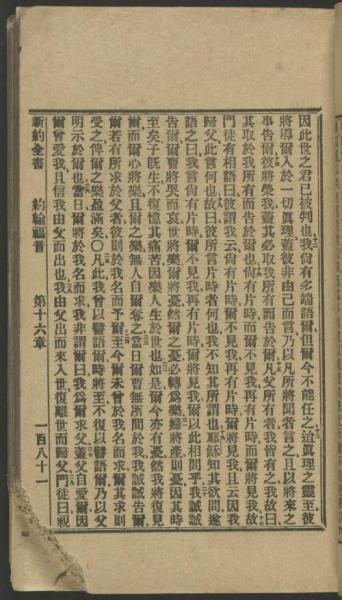 因此世之君已被判也我尙有多端語爾但爾今不能任之迨眞理之靈至彼
將導爾入於一切眞理蓋彼非由己而言乃以凡所將聞者言之且以將來之
事告爾彼將榮我蓋其必取我所有而告於爾凡父所有者我皆有之我故曰
其取於我所有而告於爾也尙有片時爾不見我再有片時爾將見我
門徒有相語曰彼謂我云尙有片時爾不見我再有片時爾將見我且云因我
歸父此言何也故曰彼所言片時者何也我不知其所謂也耶穌知其欲問遂
語之曰我言尙有片時爾不見我再有片時爾將見我爾以此相問乎我誠誠
告爾爾曹將哭而哀世將樂爾將憂然爾之憂必轉爲樂婦將產則憂因其時
至矣子旣生不復憶其痛苦因樂人生於世也如是爾今亦有憂然我將復見
爾而爾心將樂且爾之樂無人自爾奪之當日爾曹無所問於我我誠誠告爾
爾若有所求於父者彼則於我名而予爾至今爾未曾於我名而求爾其求則
受之俾爾之樂盈滿矣〇凡此我曾以譬語爾時將至不復以譬語爾乃以父
明示於爾也當日爾將於我名而求我非謂爾曰我爲爾求父蓋父自愛爾因
爾曾愛我且信我由父而出也我由父出而來入世復離世而歸父門徒曰視
新約全書　約翰福音　第十六章　一百八十一